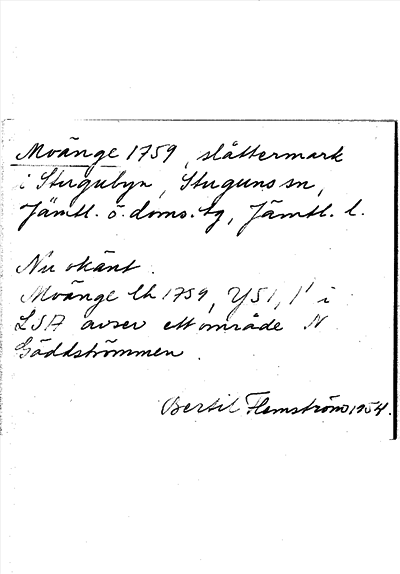 Moänge 1759, slåttermark
i Stugubyn, Stuguns sn,
Jämtl. ö. doms. tg, Jämtl. l.
Nu okänt.
Moänge lh 1759, Y51, 1' i
LSA avser ett område N
Gäddströmmen.
Bertil Flemström 1954.